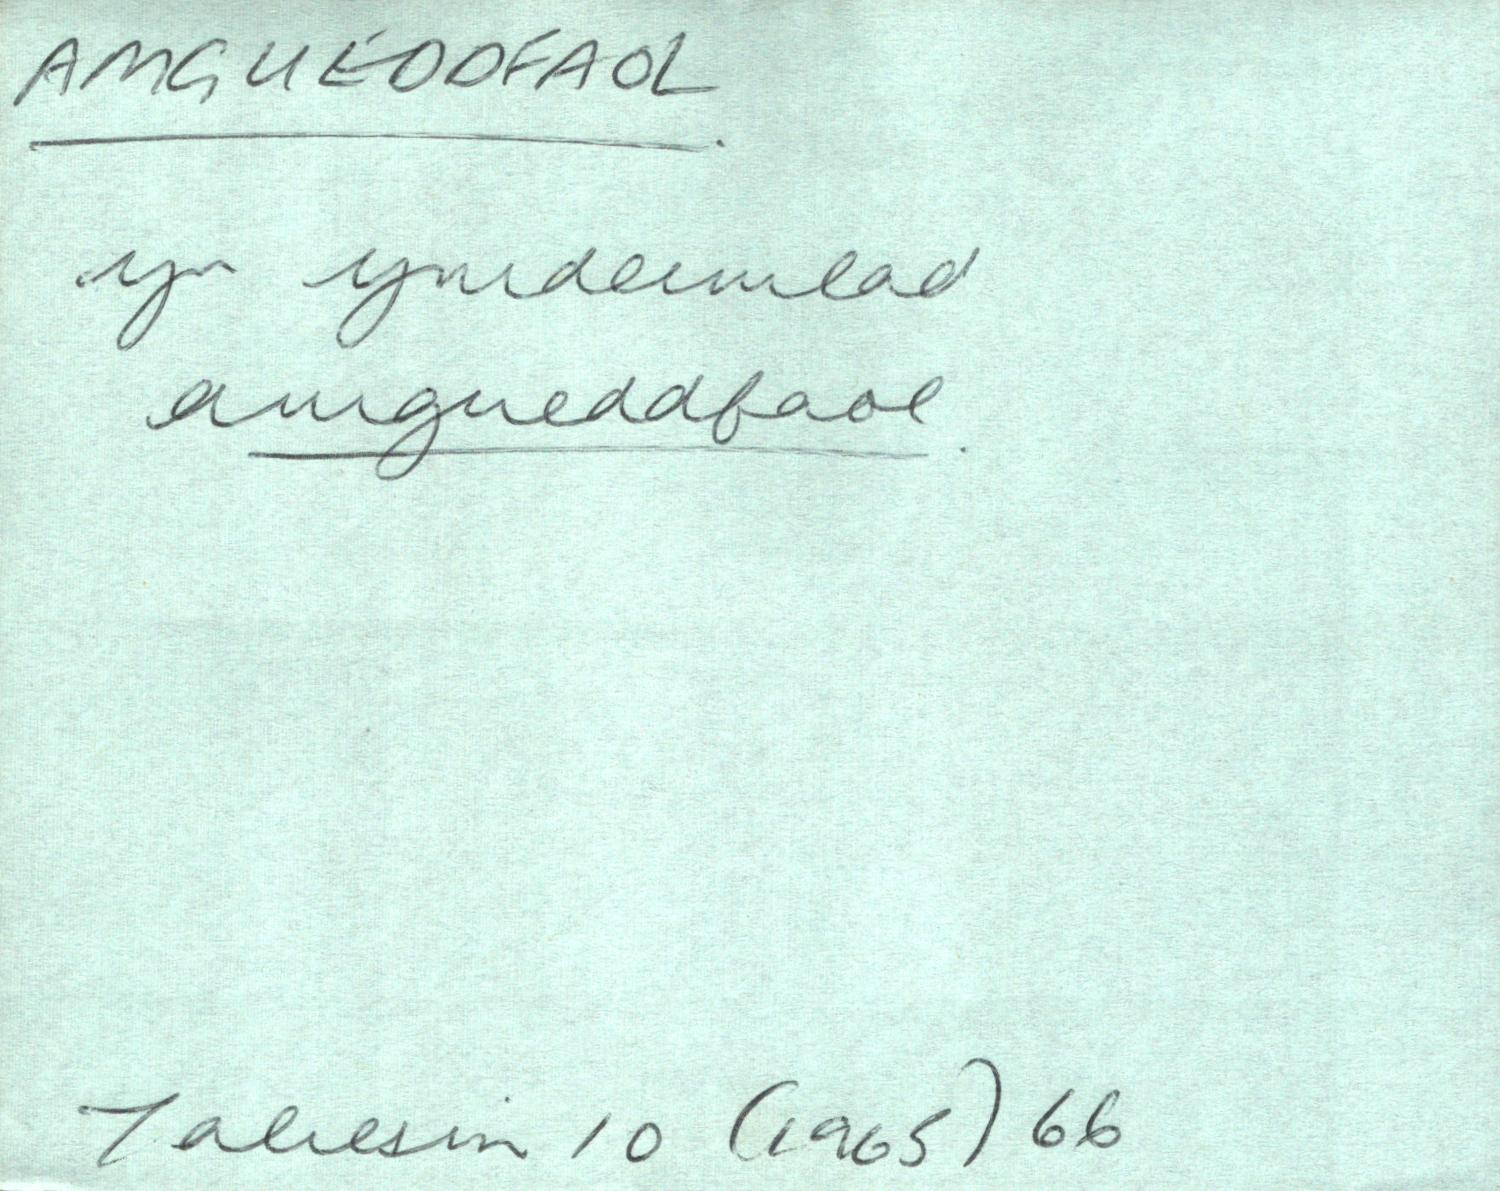 AMGUEDDFAOL
yn ymdeimlad
amgueddfaol.
Taliesin 10 (1965) 66